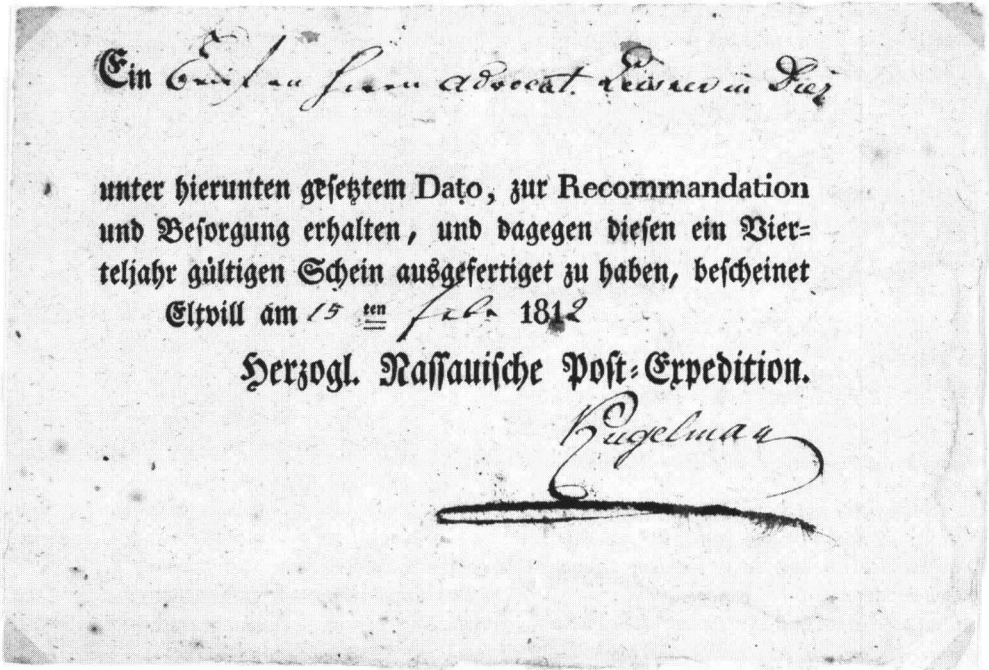 Ein Brief an Herrn Advocat in Diez
unter hierunten gesetztem Dato, zur Recommandation
und Besorgung erhalten, und dagegen diesen ein Vier=
teljahr gültigen Schein ausgefertiget zu haben, bescheinet
Eltvill am 15 ten Febr 1812
Herzogl. Nassauische Post=Expedition.
Kugelman